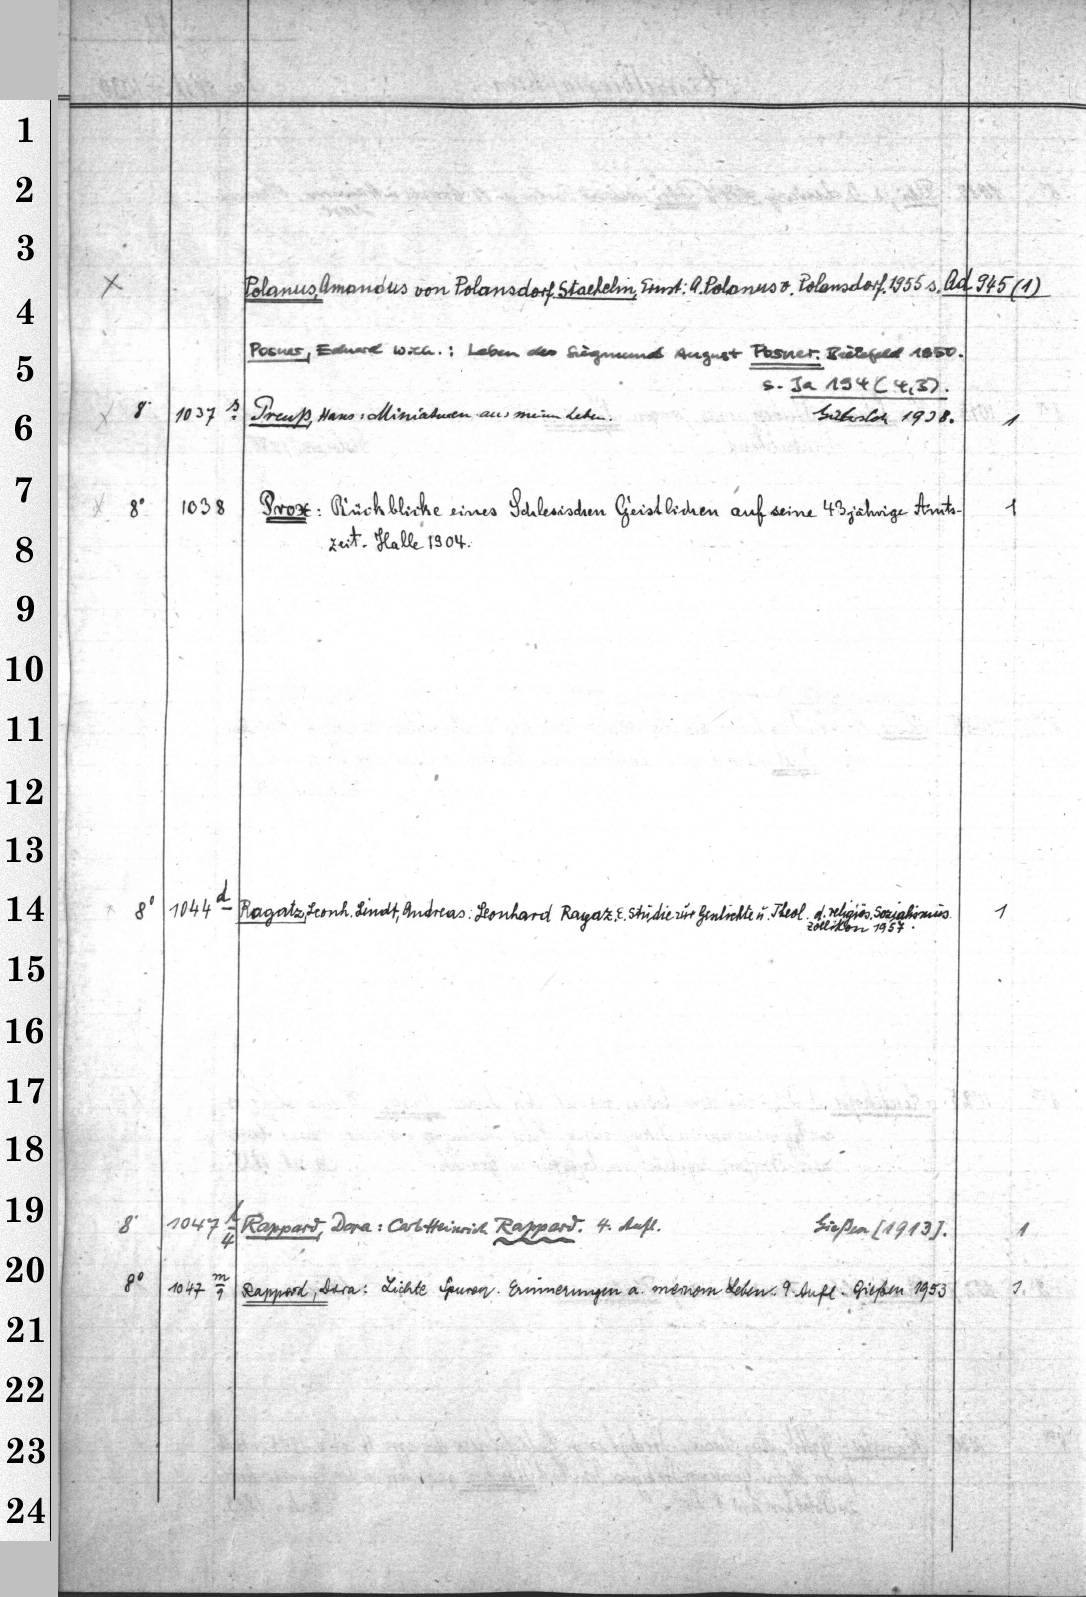 1
2
3
X Polanus, Amandus von Polansdorf. Staehelin, Ernst: A. Polanus v. Polansdorf. 1955 s. Ad 945 (1)
4
Posner, Eduard Wilh.: Leben des Siegmund August Posner. Bielefeld 1850.
5
s. Ja 194 (4,3).
8° 1037 s Preuß, Hans: Miniaturen aus meinem Leben. Gütersloh 1938. 1
6
7
8° 1038 Prox: Rückblicke eines Schlesischen Geistlichen auf seine 43jährige Amts- 1
zeit. Halle 1904.
8
9
10
11
12
13
14 8° 1044 d Ragatz, Leonh. Lindt, Andreas: Leonhard Ragaz. E. Studie zur Geschichte u. Theol. d. religiös. Sozialismus. 1
Zollikon 1957.
15
16
17
18
19
8° 1047 l/4 Rappard, Dora: Carl Heinrich Rappard. 4. Aufl. Gießen [1913]. 1
20
8° 1047 m/9 Rappard, Dora: Lichte Spuren. Erinnerungen a. meinem Leben. 9. Aufl. Gießen 1953 1.
21
22
23
24